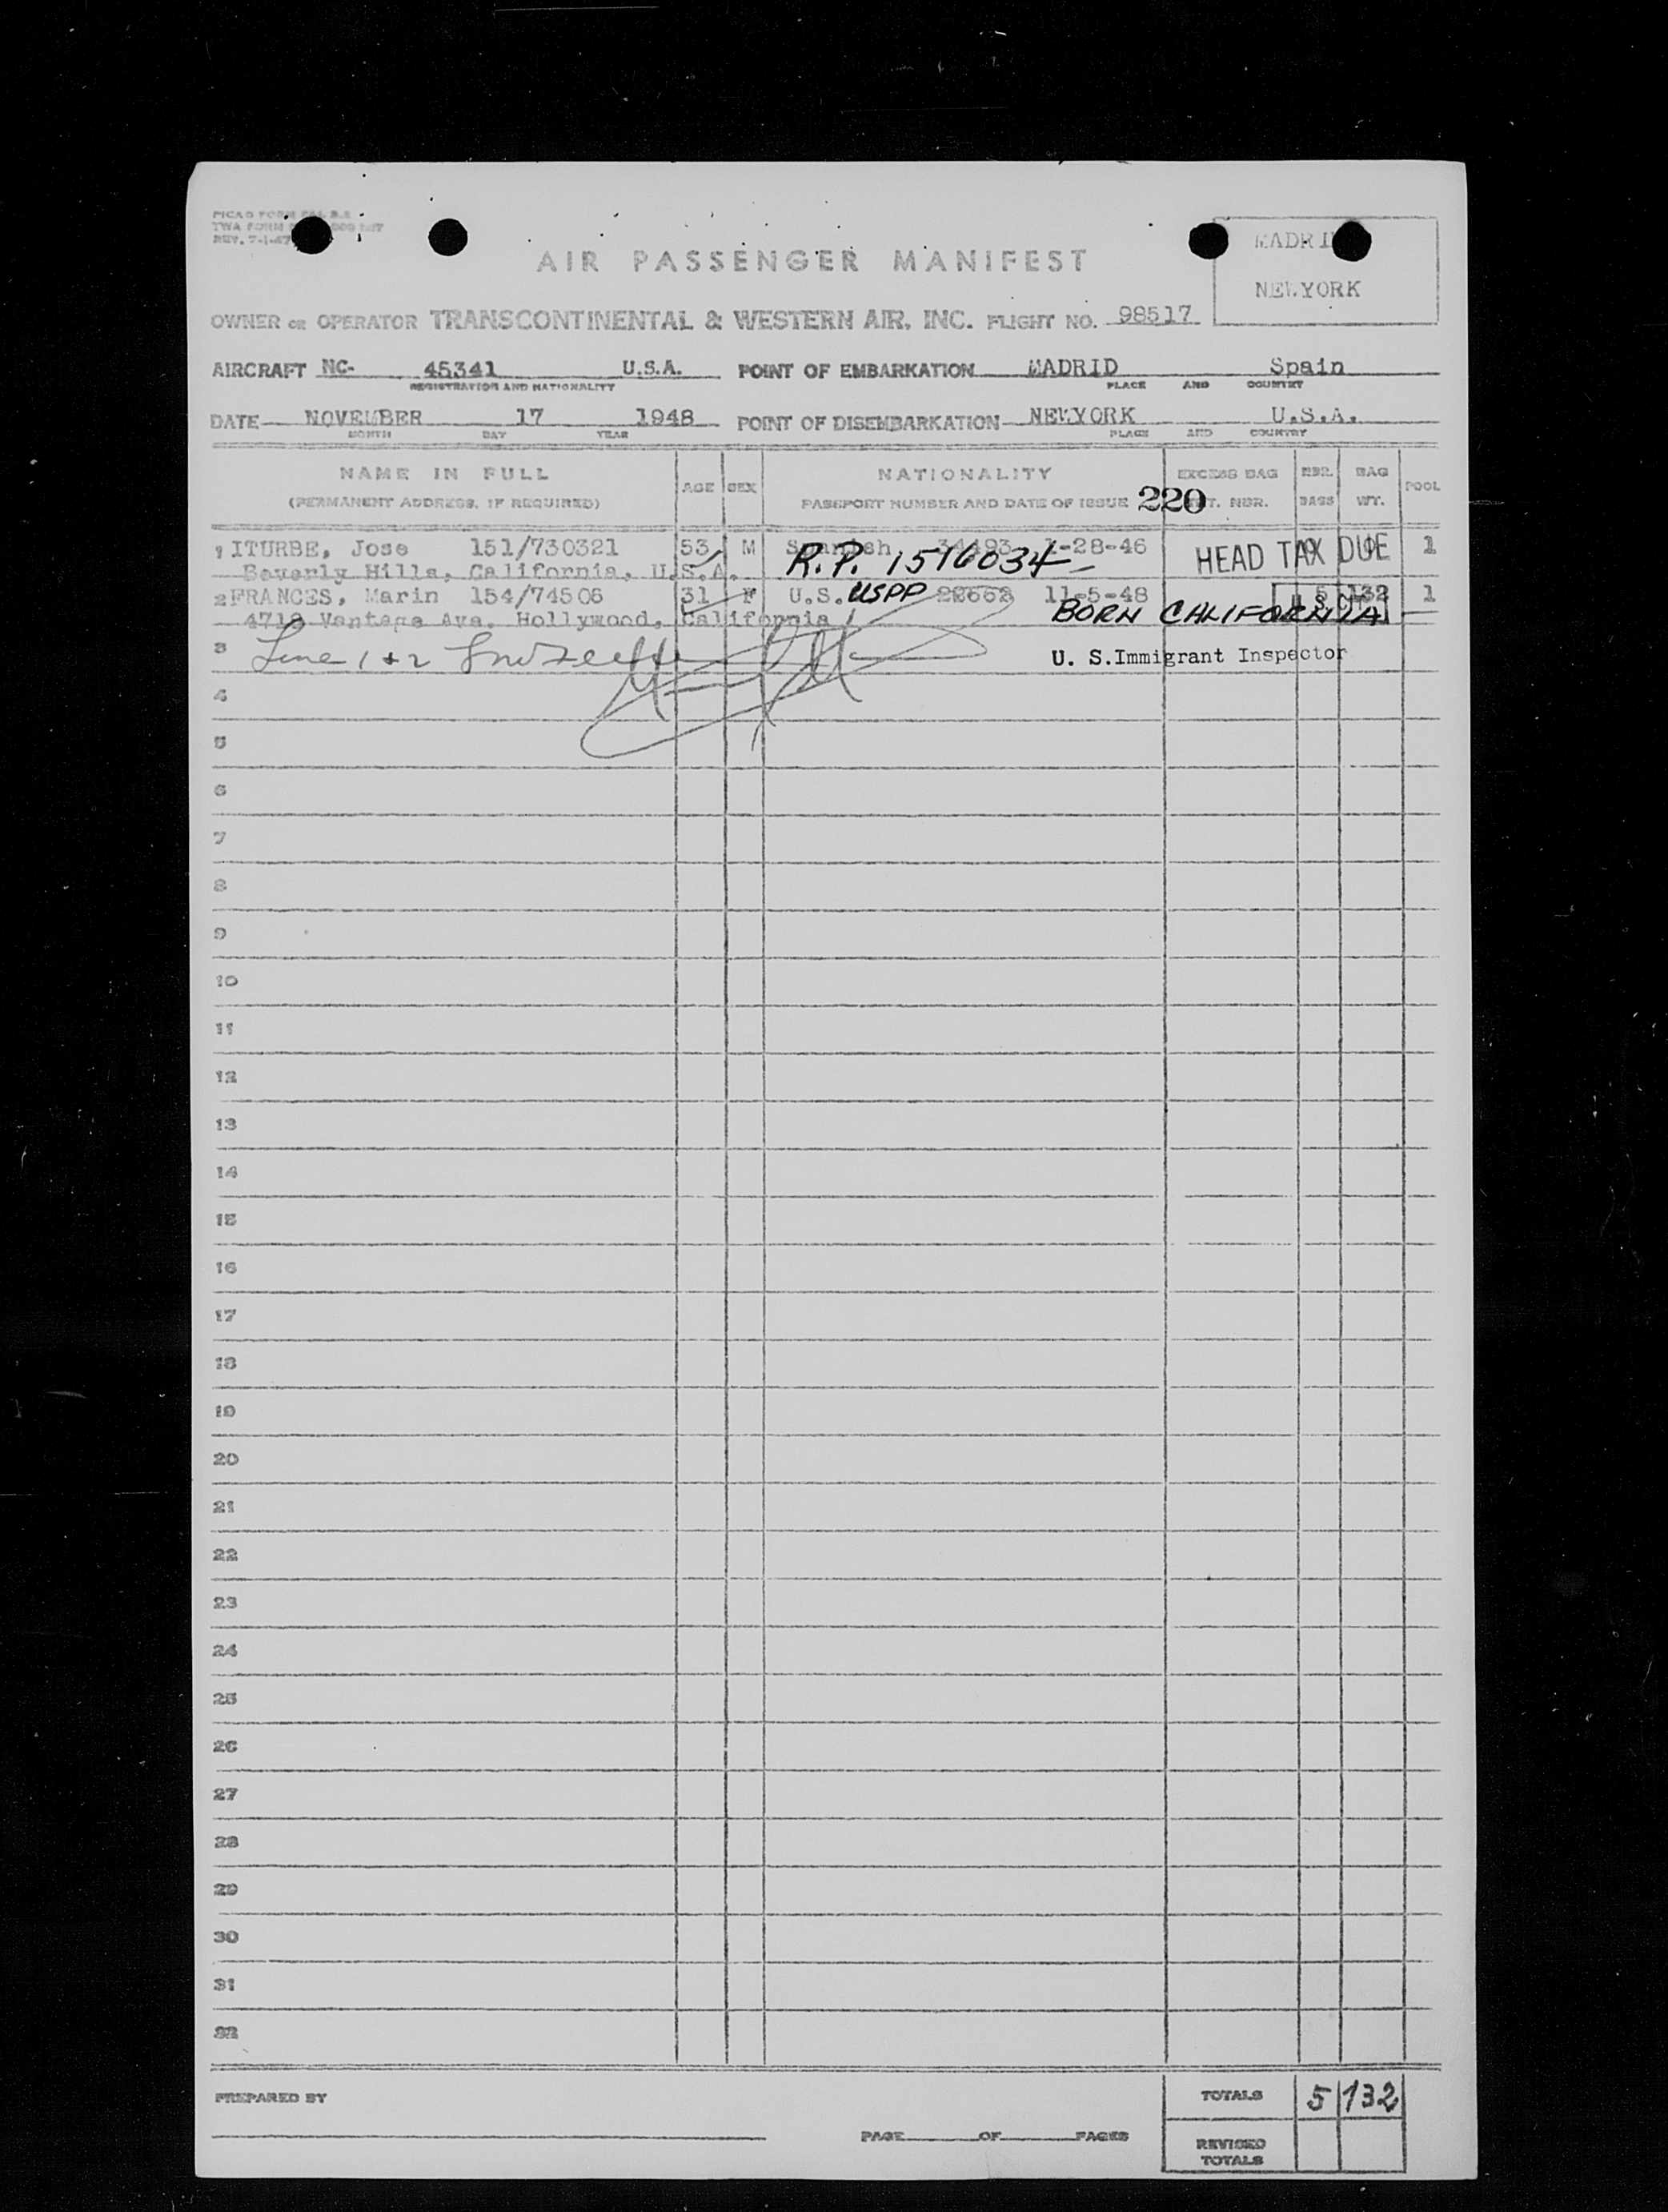 PICAO FORM
TWA FORM
REV. 7-1-47
MADRI
NEWYORK
AIR PASSENGER MANIFEST
OWNER OR OPERATOR TRANSCONTINENTAL & WESTERN AIR, INC. FLIGHT NO. 98517
AIRCRAFT NC- 45341 U.S.A. POINT OF EMBARKATION MADRID Spain
REGISTRATION AND NATIONALITY PLACE AND COUNTRY
DATE NOVEMBER 17 1948 POINT OF DISEMBARKATION NEWYORK U.S.A.
MONTH DAY YEAR PLACE AND COUNTRY
NAME IN FULL AGE SEX NATIONALITY EXCESS BAG NBR. BAG POOL
(PERMANENT ADDRESS, IF REQUIRED) PASSPORT NUMBER AND DATE OF ISSUE 220 T. NBR. BAGS WT.
1 ITURBE, Jose 151/730321 53 M Spanish 34493 1-28-46 1
R.P. 1516034 HEAD TAX DUE
Beverly Hills, California, U.S.A.
2 FRANCES, Marin 154/74506 31 F U.S. USPP 22662 11-5-48 5 132 1
4718 Vantage Ave. Hollywood, California BORN CALIFORNIA
3 Line 1 + 2 U. S.Immigrant Inspector
4
5
6
7
8
9
10
11
12
13
14
15
16
17
18
19
20
21
22
23
24
25
26
27
28
29
30
31
32
PREPARED BY TOTALS 5 132
PAGE OF PAGES REVISED
TOTALS